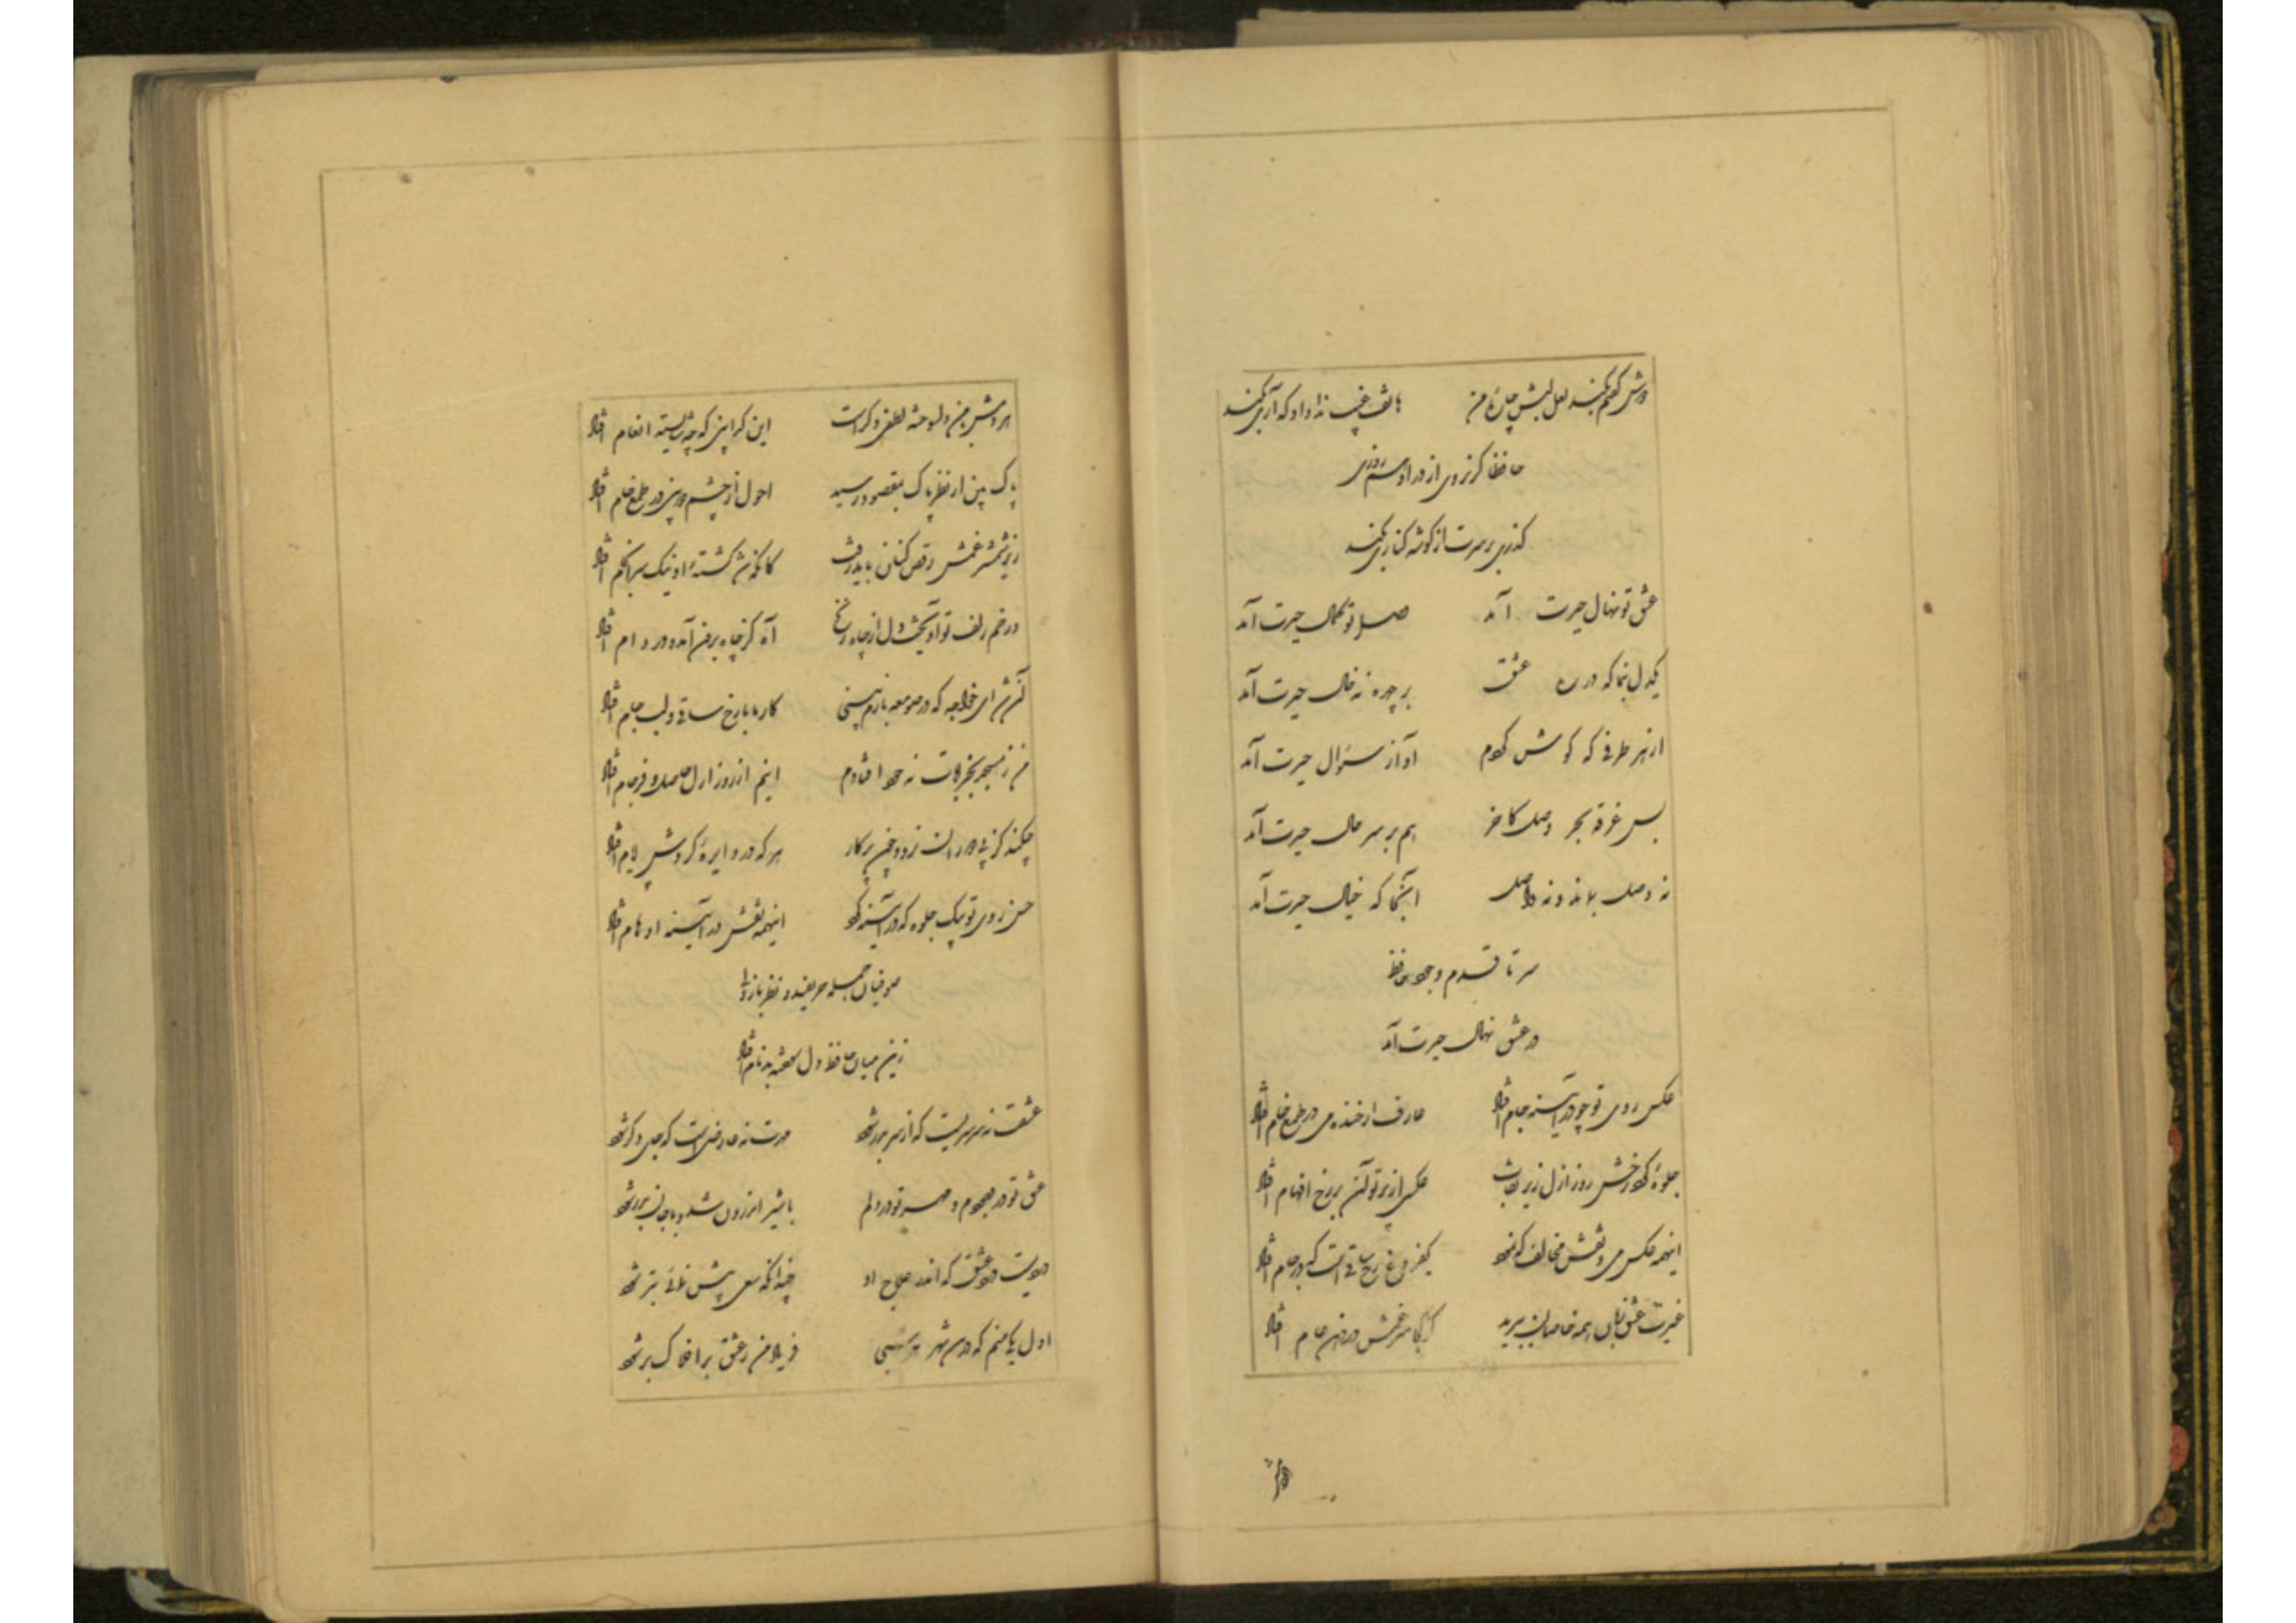 دوش گفتم بکند لعل لبش چاره من هاتف غیب ندا داد که آری بکند
حافظا گر نروی از در او هم روزی
گذری بر سرت از گوشه کناری بکند
عشق تو نهال حیرت آمد وصل تو کمال حیرت آمد
یکدل بنما که در ره عشق بر چهره نه خال حیرت آمد
از هر طرفی که گوش کردم آواز سؤال حیرت آمد
بس غرقه بحر وصل کاخر هم بر سر حال حیرت آمد
نه وصل بماند و نه واصل آنجا که خیال حیرت آمد
سر تا قدم وجود حافظ
در عشق نهال حیرت آمد
عکس روی تو چو در آینه جام افتاد عارف از خنده می در طمع خام افتاد
جلوهٔ کرد رخش روز ازل زیر نقاب عکسی از پرتو آن بر رخ افهام افتاد
اینهمه عکس می و نقش مخالف که نمود یکفروغ رخ ساقی است که در جام افتاد
غیرت عشق زبان همه خاصان ببرید کز کجا سر غمش در دهن عام افتاد
هر دمش با من دلسوخته لطفی دگر است این گدا بین که چه شایسته انعام افتاد
پاک بین از نظر پاک بمقصود رسید احول از چشم دوبین در طمع خام افتاد
زیر شمشیر غمش رقص کنان باید رفت کانکه شد کشتهٔ او نیک سرانجام افتاد
در خم زلف تو آویخت دل از چاه زنخ آه کز چاه برون آمد و در دام افتاد
آن شد ای خواجه که در صومعه بازم بینی کار ما با رخ ساقی و لب جام افتاد
من ز مسجد بخرابات نه خود افتادم اینم از روز ازل حاصل فرجام افتاد
چکند کز پی دوران نرود چون پرکار هر که در دایرهٔ گردش ایام افتاد
حسن روی تو بیک جلوه که در آینه کرد اینهمه نقش در آیینه اوهام افتاد
صوفیان جمله حریفند و نظرباز ولی
زین میان حافظ دل سوخته بدنام افتاد
عشقت نه سرسریست که از سر بدر شود مهرت نه عارضی است که جای دگر شود
عشق تو در وجودم و مهر تو در دلم با شیر اندرون شد و با جان بدر شود
دردیست درد عشق که اندر علاج او چندانکه سعی بیش نمائی بتر شود
اول یکی منم که درین شهر هر شبی فریاد من ز عشق بر افلاک بر شود